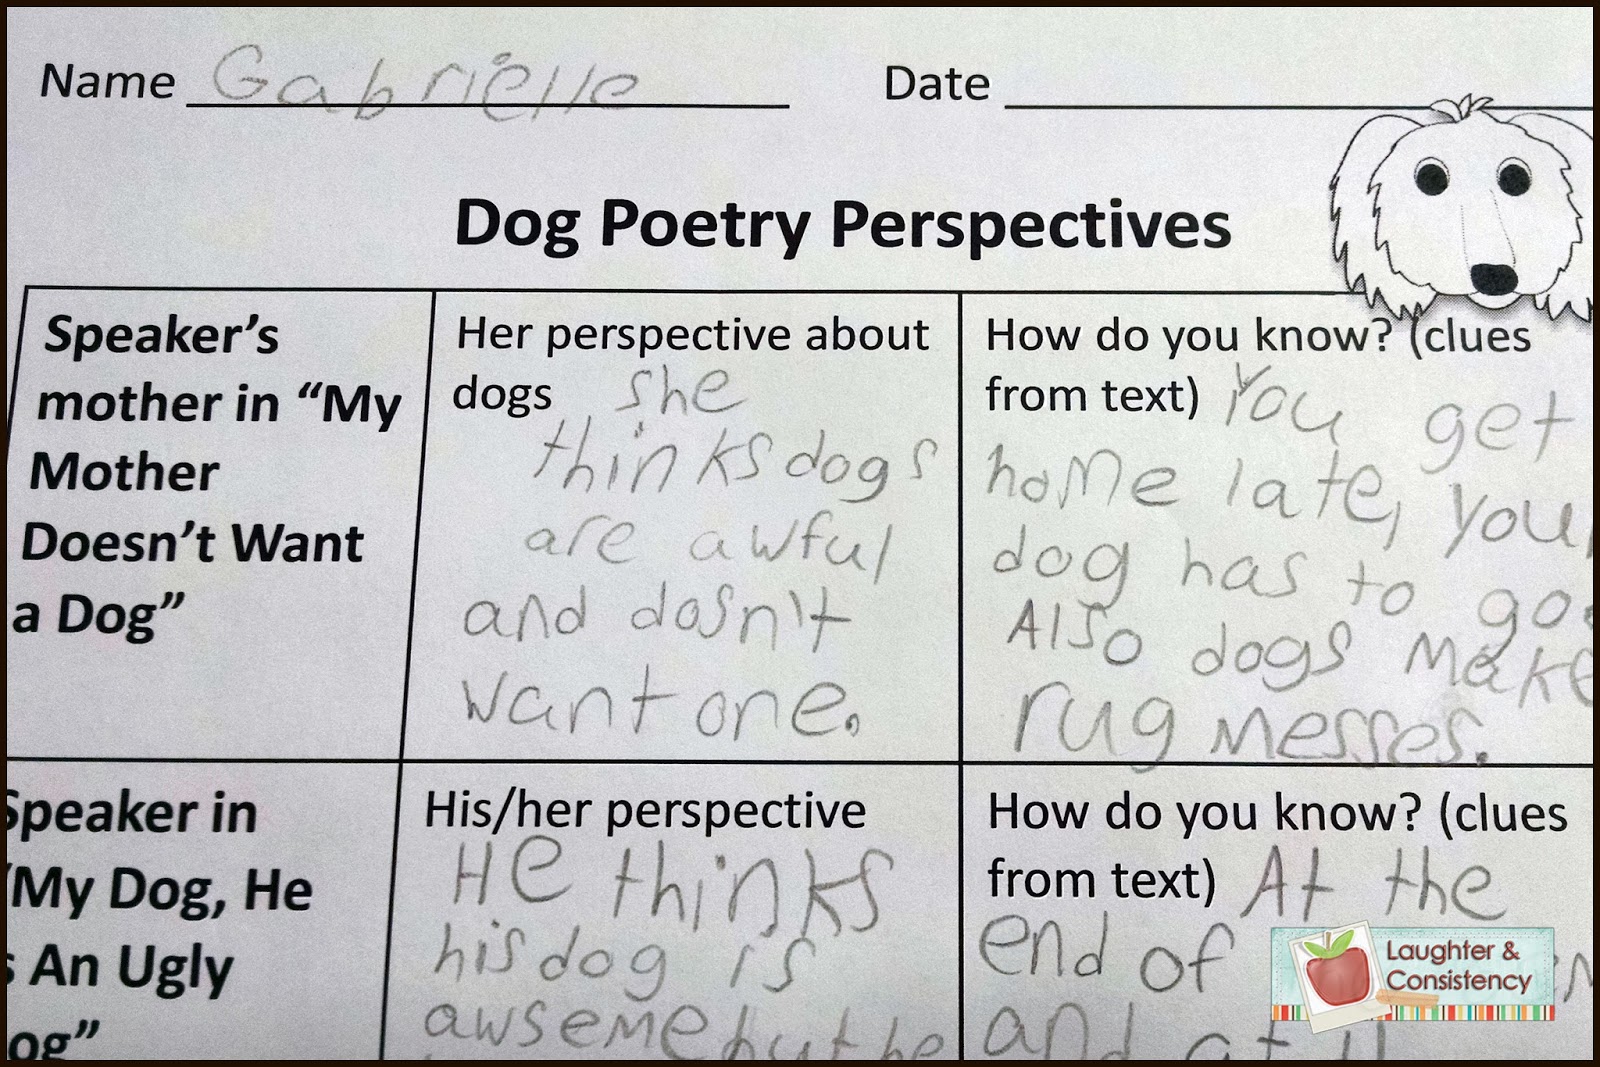 Name Gabrielle Date
Dog Poetry Perspectives
Speaker's
mother in “My
Mother
Doesn't Want
a Dog”
Her perspective about
dogs she
thinks dogs
are awful
and dosn't
want one.
How do you know? (clues
from text) You get
home late, you
dog has to go
Also dogs make
rug messes.
Speaker in
“My Dog, He
An Ugly
His/her perspective
He thinks
his dog is
awseme but he
How do you know? (clues
from text) At the
end of
and
Laughter &
Consistency